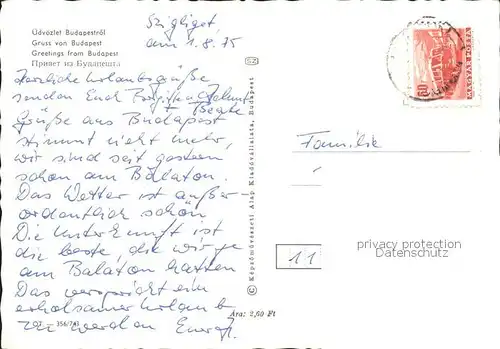 Üdvözlet Budapestről
Gruss von Budapest
Greetings from Budapest
Привет из Будапешта
Szigliget,
am 1.8.75
Herzliche Urlaubsgrüße
senden Euch Brigitte, Helmut
+ Beate
Grüße aus Budapest
stimmt nicht mehr,
wir sind seit gestern
schon am Balaton.
Das Wetter ist außer-
ordentlich schön.
Die Unterkunft ist
die beste, die wir je
am Balaton hatten
Das verspricht ein
erholsamer Urlaub
zu werden
52
© Képzőművészeti Alap Kiadóvállalata, Budapest
Ára: 2,60 Ft
356/743
60
MAGYAR POSTA
Familie
11
privacy protection
Datenschutz